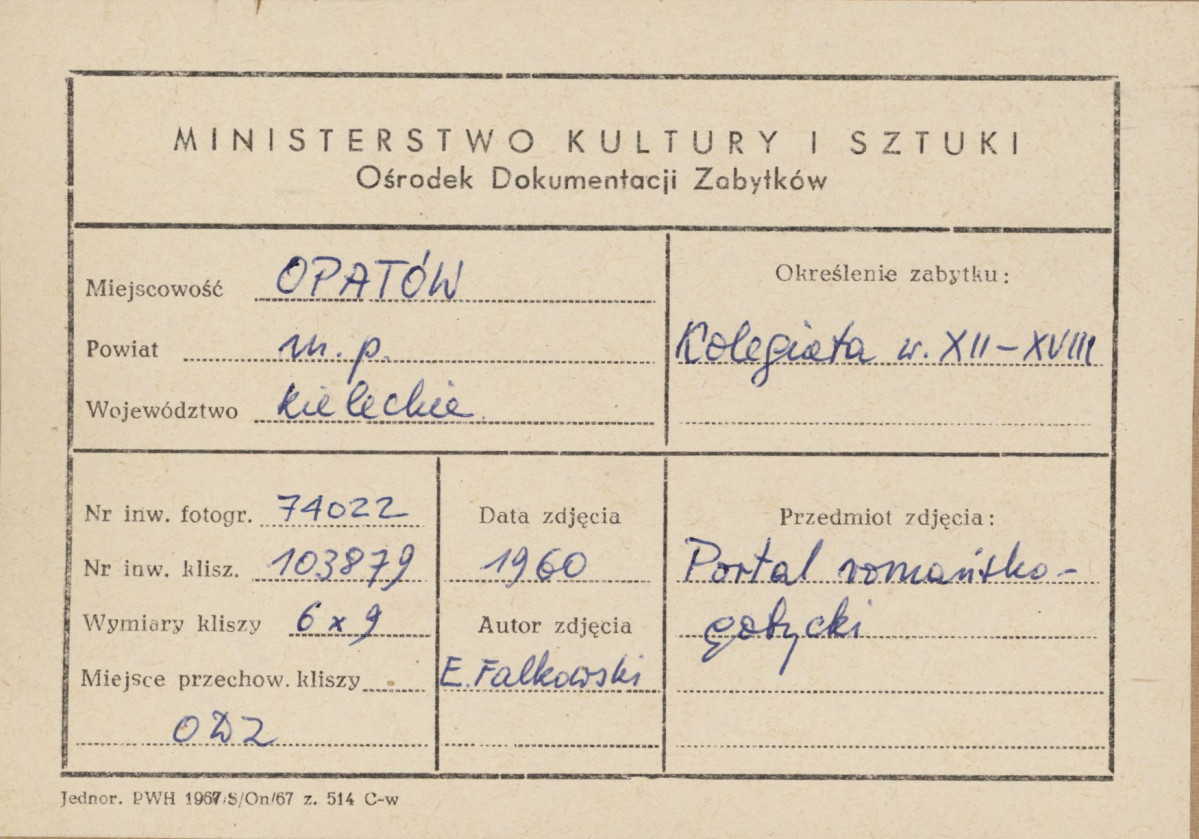 MINISTERSTWO KULTURY I SZTUKI
Ośrodek Dokumentacji Zabytków
Miejscowość OPATÓW
Powiat m.p.
Województwo kieleckie
Określenie zabytku:
Kolegiata w. XII-XVIII
Nr inw. fotogr. 74022
Nr inw. klisz. 103879
Wymiary kliszy 6x9
Miejsce przechow. kliszy
ODZ
Data zdjęcia
1960
Autor zdjęcia
E. Falkowski
Przedmiot zdjęcia:
Portal romańsko-
gotycki
Jednor. PWH 1967/S/On/67 z. 514 C-w